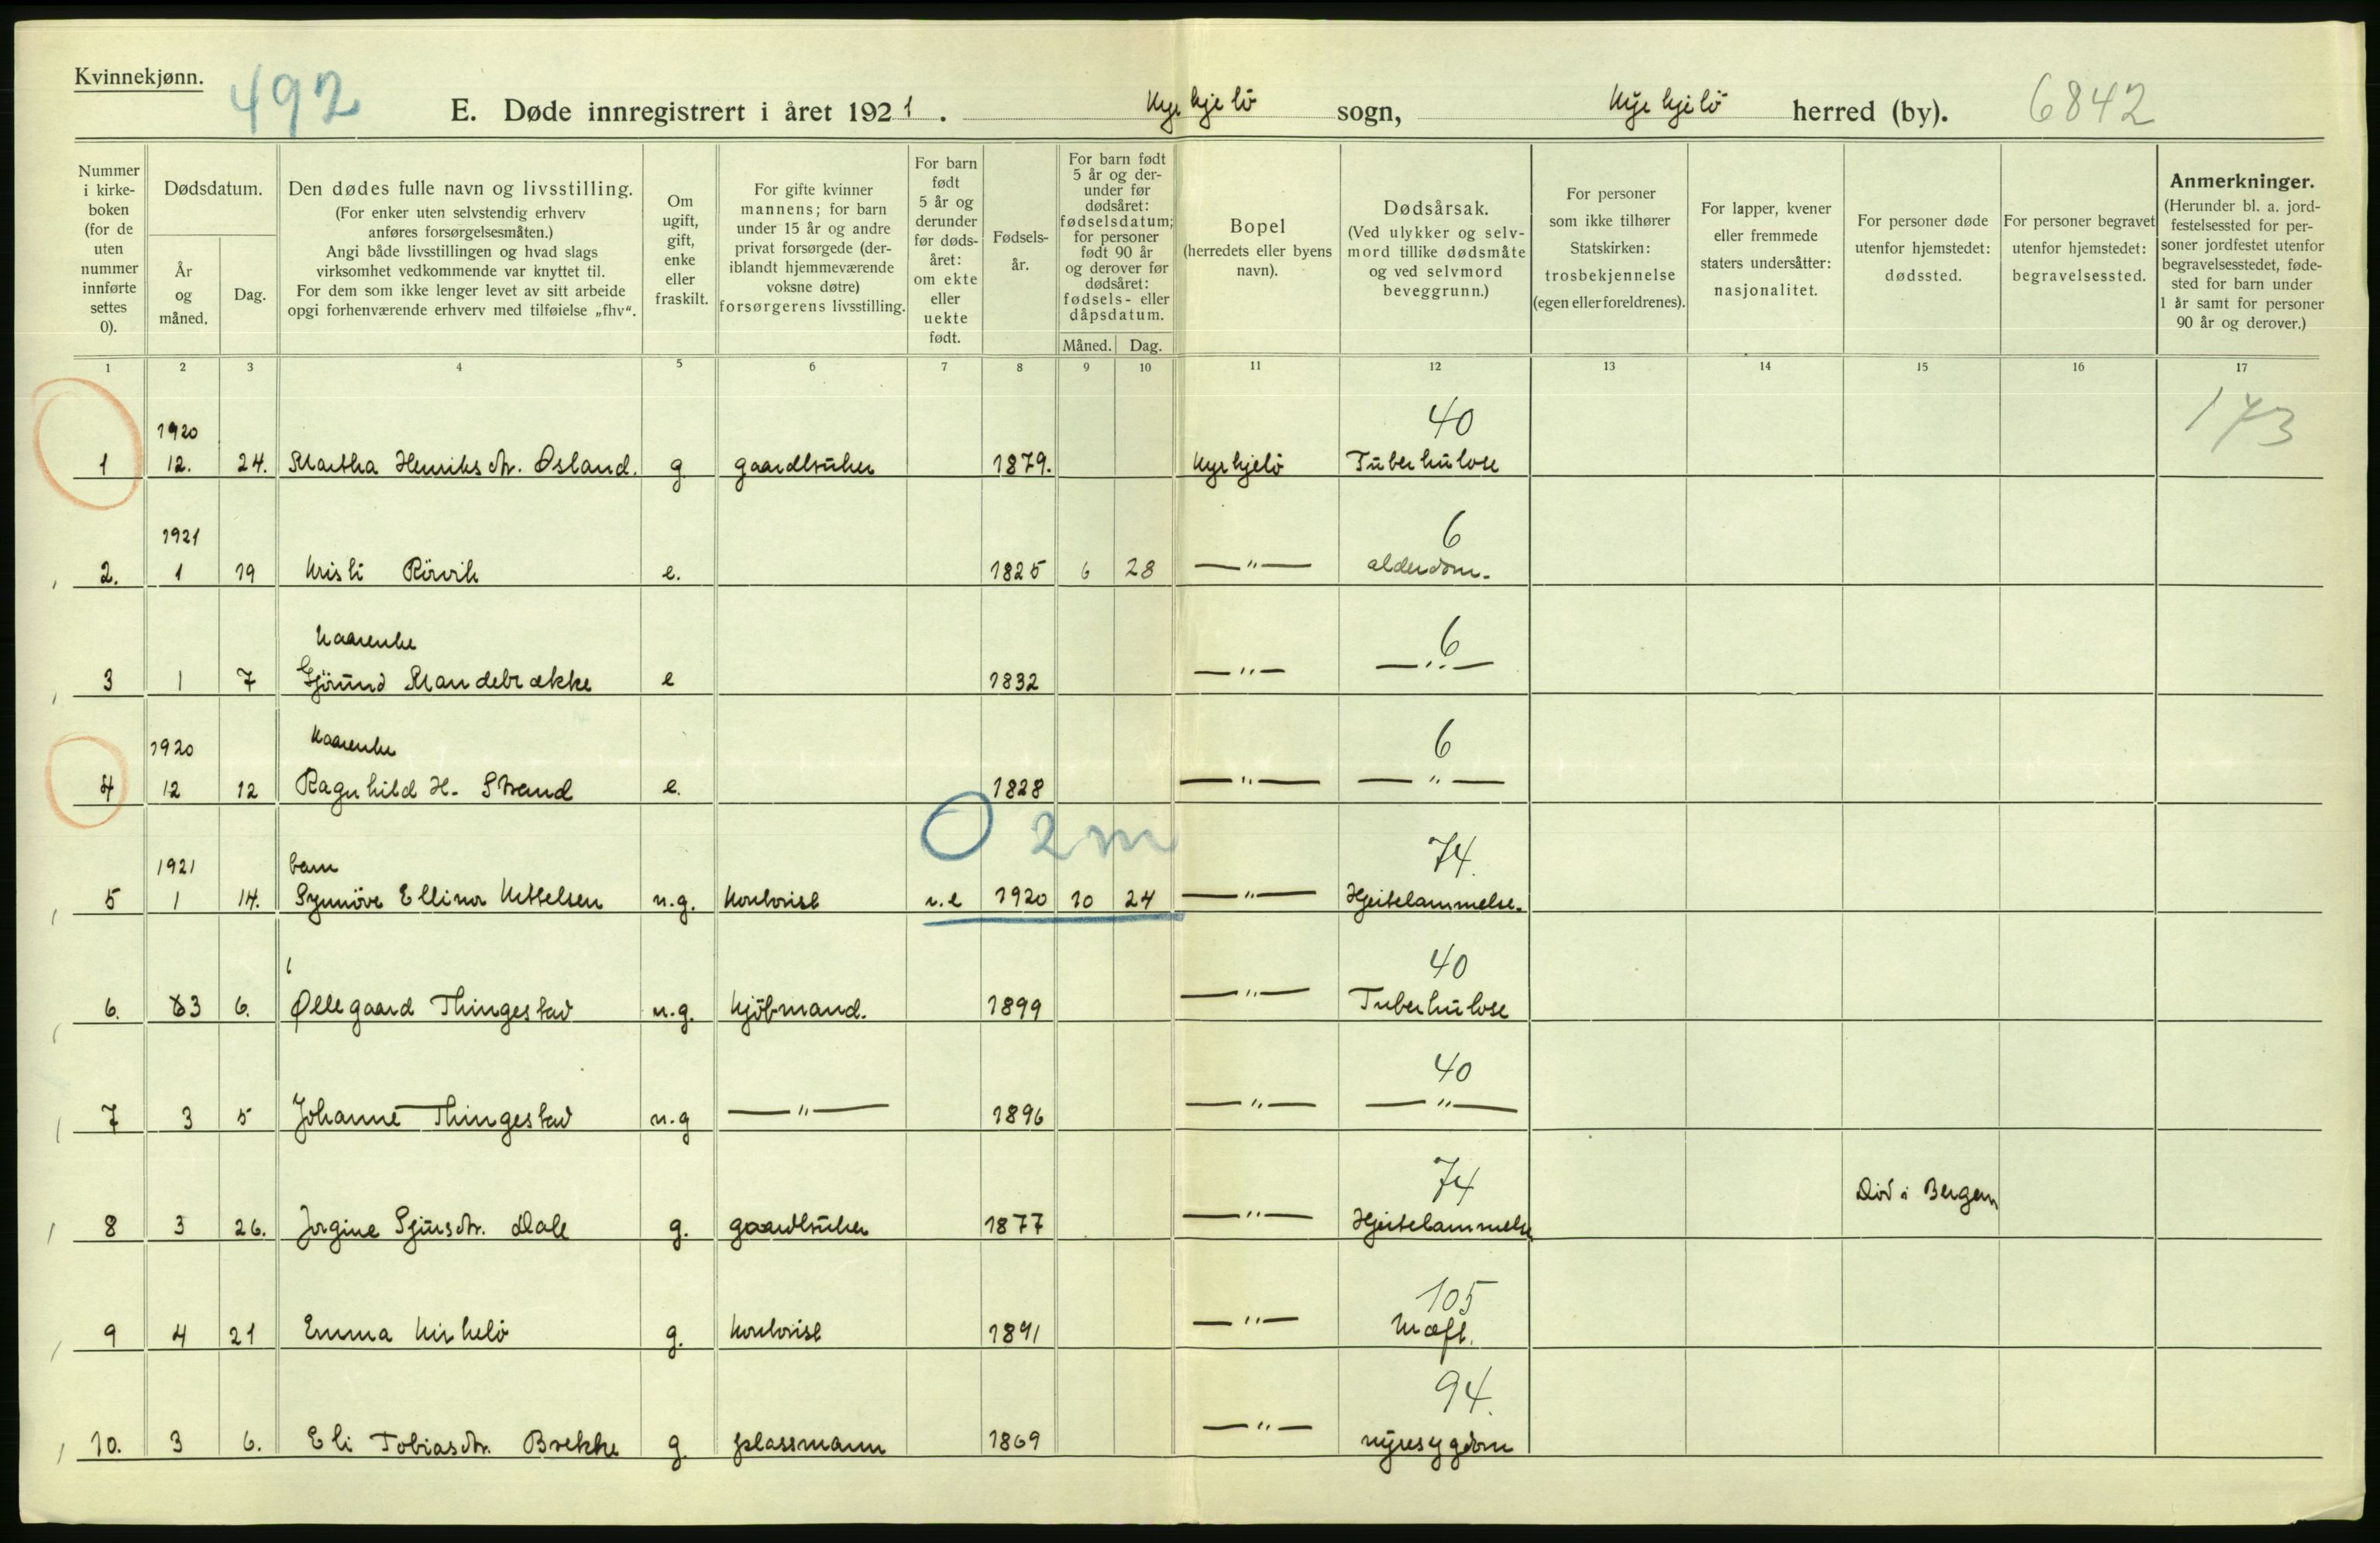 Kvinnekjønn.
492
E. Døde innregistrert i året 1921. Kyrkjelö sogn, Kyrkjelö herred (by). 6842
Nummer i kirkeboken (for de uten nummer innførte settes 0).
Dødsdatum.
År og måned.
Dag.
Den dødes fulle navn og livsstilling.
(For enker uten selvstendig erhverv anføres forsørgelsesmåten.)
Angi både livsstillingen og hvad slags virksomhet vedkommende var knyttet til.
For dem som ikke lenger levet av sitt arbeide opgi forhenværende erhverv med tilføielse „fhv“.
Om ugift, gift, enke eller fraskilt.
For gifte kvinner mannens; for barn under 15 år og andre privat forsørgede (deriblandt hjemmeværende voksne døtre) forsørgerens livsstilling.
For barn født 5 år og derunder før dødsåret: om ekte eller uekte født.
Fødselsår.
For barn født 5 år og derunder før dødsåret: fødselsdatum; for personer født 90 år og derover før dødsåret: fødsels- eller dåpsdatum.
Måned. Dag.
Bopel (herredets eller byens navn).
Dødsårsak. (Ved ulykker og selvmord tillike dødsmåte og ved selvmord beveggrunn.)
For personer som ikke tilhører Statskirken: trosbekjennelse (egen eller foreldrenes).
For lapper, kvener eller fremmede staters undersåtter: nasjonalitet.
For personer døde utenfor hjemstedet: dødssted.
For personer begravet utenfor hjemstedet: begravelsessted.
Anmerkninger. (Herunder bl. a. jordfestelsessted for personer jordfestet utenfor begravelsesstedet, fødested for barn under 1 år samt for personer 90 år og derover.)
1 2 3 4 5 6 7 8 9 10 11 12 13 14 15 16 17
1920 40 173
1 12. 24. Martha Henriksdtr. Øsland. g gaardbruker 1879. Kyrkjelö Tuberkulose
1921 6
2. 1 19 Kristi Rörvik e. 1825 6 28 —"— alderdom.
Kaarenke 6
3 1 7 Gjörund Mandebrække e 1832 —"— —"—
1920 Kaarenke 6
4 12 12 Ragnhild H. Strand e. 1828 —"— —"—
0 2 m
1921 barn 74.
5 1 14. Synnöve Ellinor Kittelsen u.g. Kontorist u.e 1920 10 24 —"— Hjertelammelse.
40
6. 3 6. Øllegaard Thingestad u.g. Kjöbmand. 1899 —"— Tuberkulose
40
7 3 5 Johanne Thingestad u.g —"— 1896 —"— —"—
74
8 3 26. Jorgine Sjursdtr. Dale g. gaardbruker 1877 —"— Hjertelammelse Död i Bergen
105
9 4 21 Emma Kirkelö g. Kontorist 1891 —"— Kræft.
94.
10. 3 6. Eli Tobiasdtr. Brekke g. plassmann 1869 —"— nyresygdom